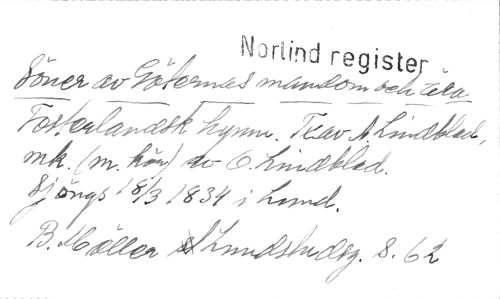 Norlind register
Söner av Göternas mandom och ära
Fosterländsk hymn. Tx av A Lindblad,
mk. (m. kör) av O. Lindblad.
Sjöngs 18/3 1834 i Lund.
B. Möller Lundstudeg. S. 62